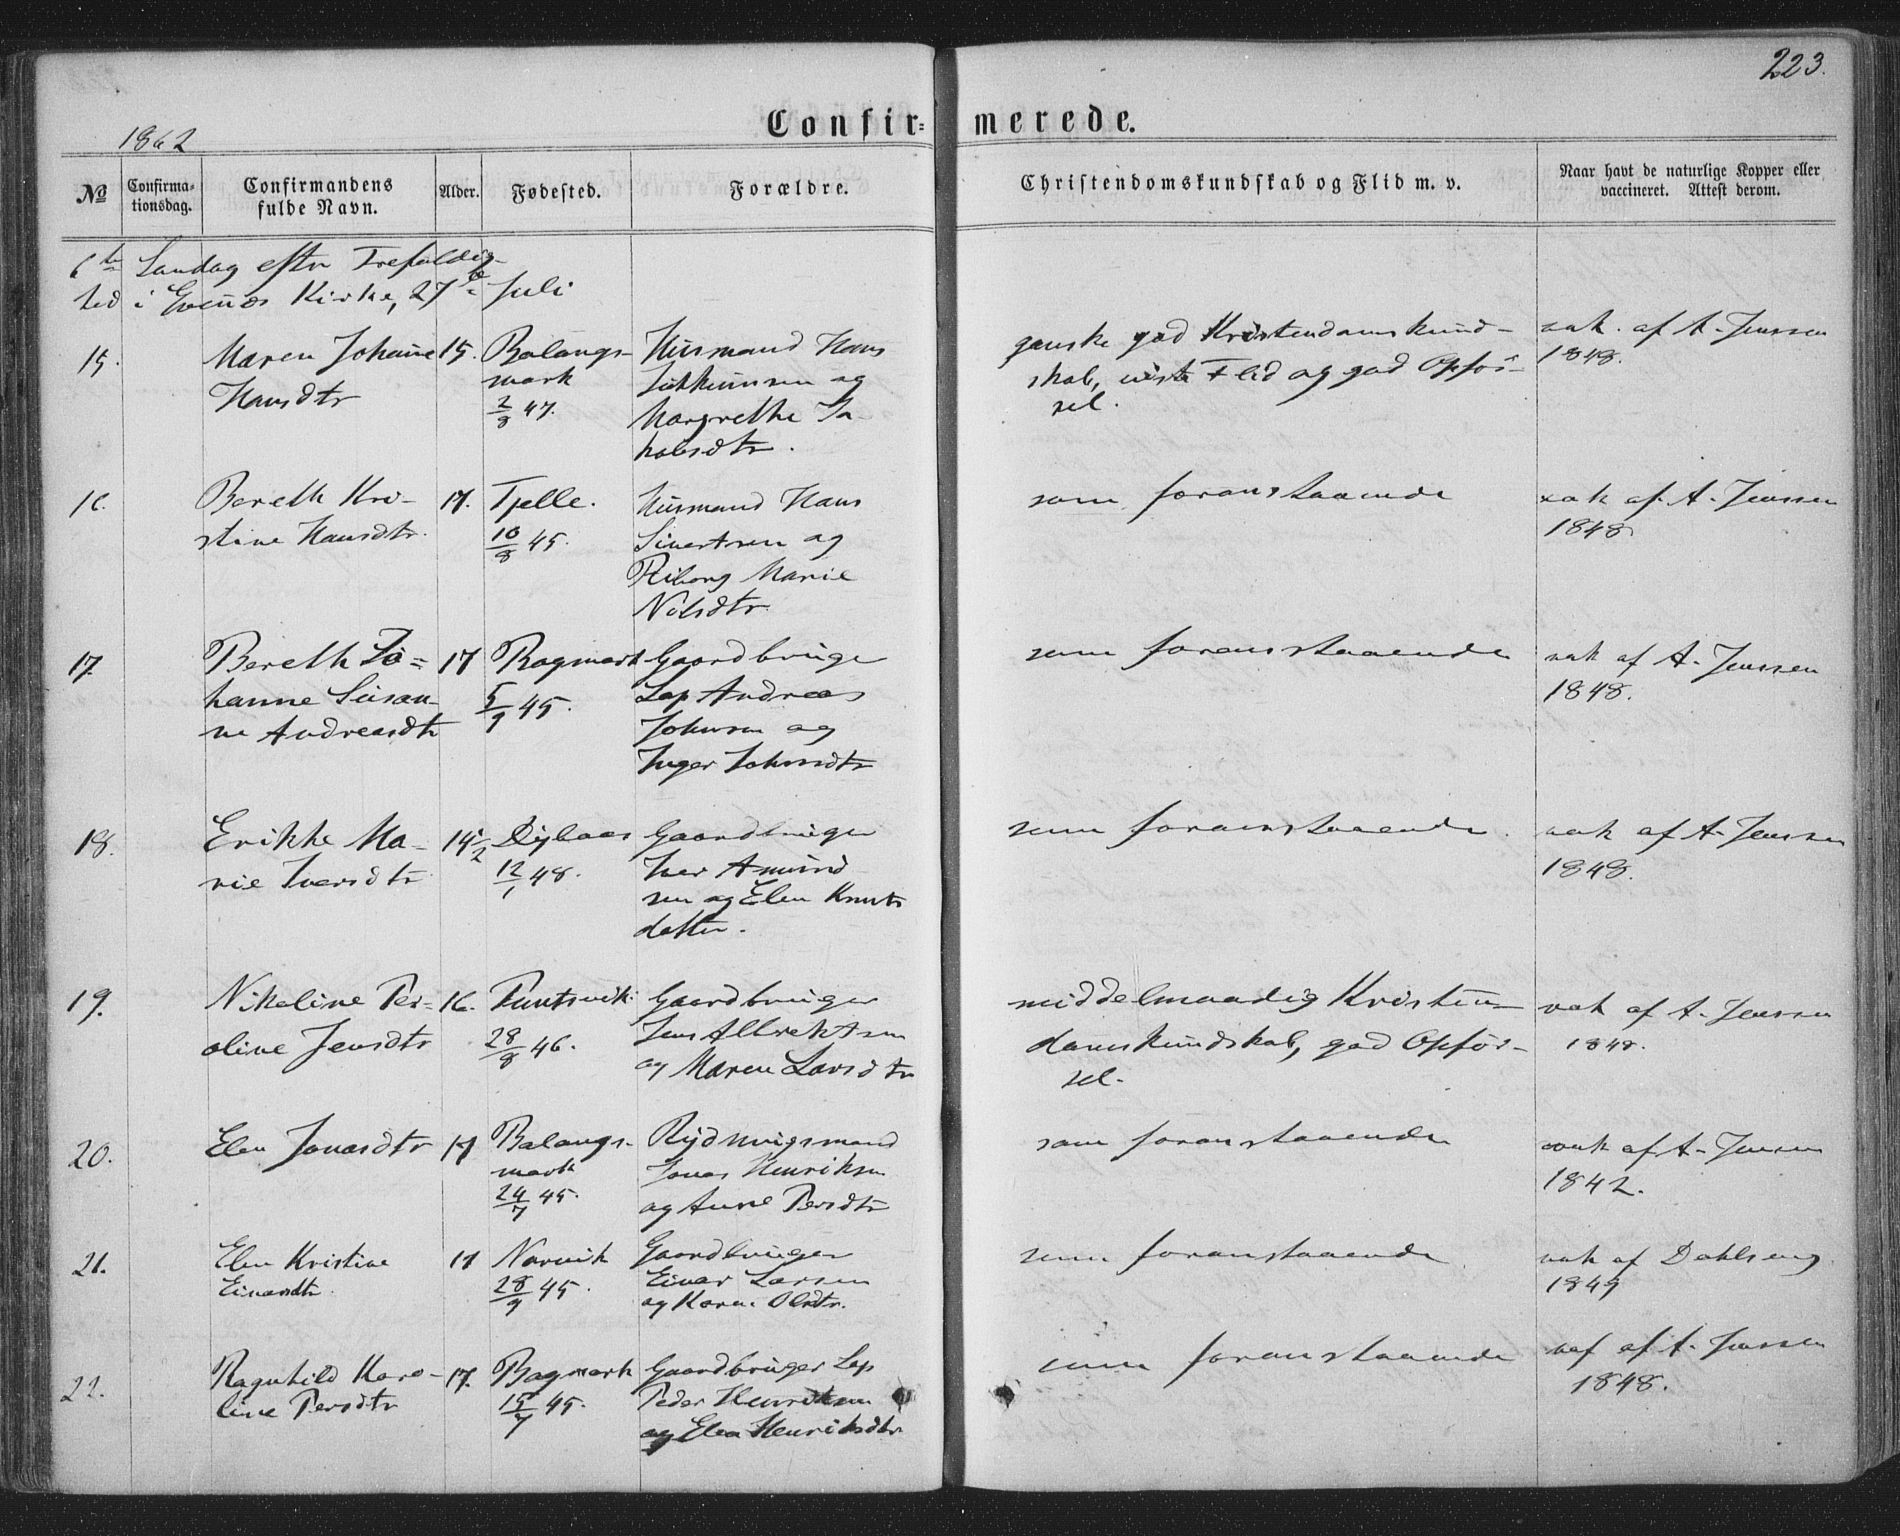 223.
Confirmerede.
1862
No
Confirmationsdag.
Confirmandens fulde Navn.
Alder.
Fødested.
Forældre.
Christendomskundskab og Flid m. v.
Naar havt de naturlige Kopper eller vaccineret. Attest derom.
6te Søndag efter Trefoldig-
hed i Evenæs Kirke, 27de Juli
15.
Maren Johanne
Hansdtr
15.
Balangs-
mark
2/8 47.
Husmand Hans
og
Margrethe Ja-
kobsdtr.
ganske god Kristendomskund-
skab, Flid og god Opfør-
sel.
vak. af A. Jenssen
1848.
16.
Bereth Kri-
stine Hansdtr.
17.
Tjelle.
10/8 45.
Husmand Hans
Sivertsen og
Riborg Marie
Nilsdtr
som foranstaaende
vak af A. Jenssen
1848
17.
Bereth Jo=
hanne Susan-
ne Andreasdtr
17
Bogmark
5/9 45.
Gaardbruger
Lap Andreas
Johnsen og
Inger Johnsdtr
som foranstaaende
vak af A. Jenssen
1848.
18.
Erikke Ma-
rie Iversdtr
14 1/2
Dybaas
12/1 48.
Gaardbruger
Iver Amund
sen og Elen Knuts
datter.
som foranstaaende.
vak af A. Jenssen
1848.
19.
Nikoline Per-
oline Jensdtr
16.
28/8 46.
Gaardbruger
Jens Albrektsen
og Maren Larsdtr
middelmaadig Kristen-
domskundskab, god Opfør-
sel.
vak af A. Jenssen
1848.
20.
Elen Jonasdtr
17
Balangs-
mark
24/7 45.
Rydningsmand
Jonas Henriksen
og Anne Persdtr
som foranstaaende
vak af A. Jenssen
1842.
21.
Elen Kristine
Einarsdtr.
17
Narvik
28/9 45.
Gaardbruger
Einar Larsen
og Karen Olsdtr.
som foranstaaende
vak af Dahlseng
1849
22.
Ragnhild Karo-
line Persdtr
17.
Bogmark
15/7 45.
Gaardbruger Lap
Peder Henriksen
og Elen Henriksdtr.
som foranstaaende
vaf af A. Jenssen
1848.